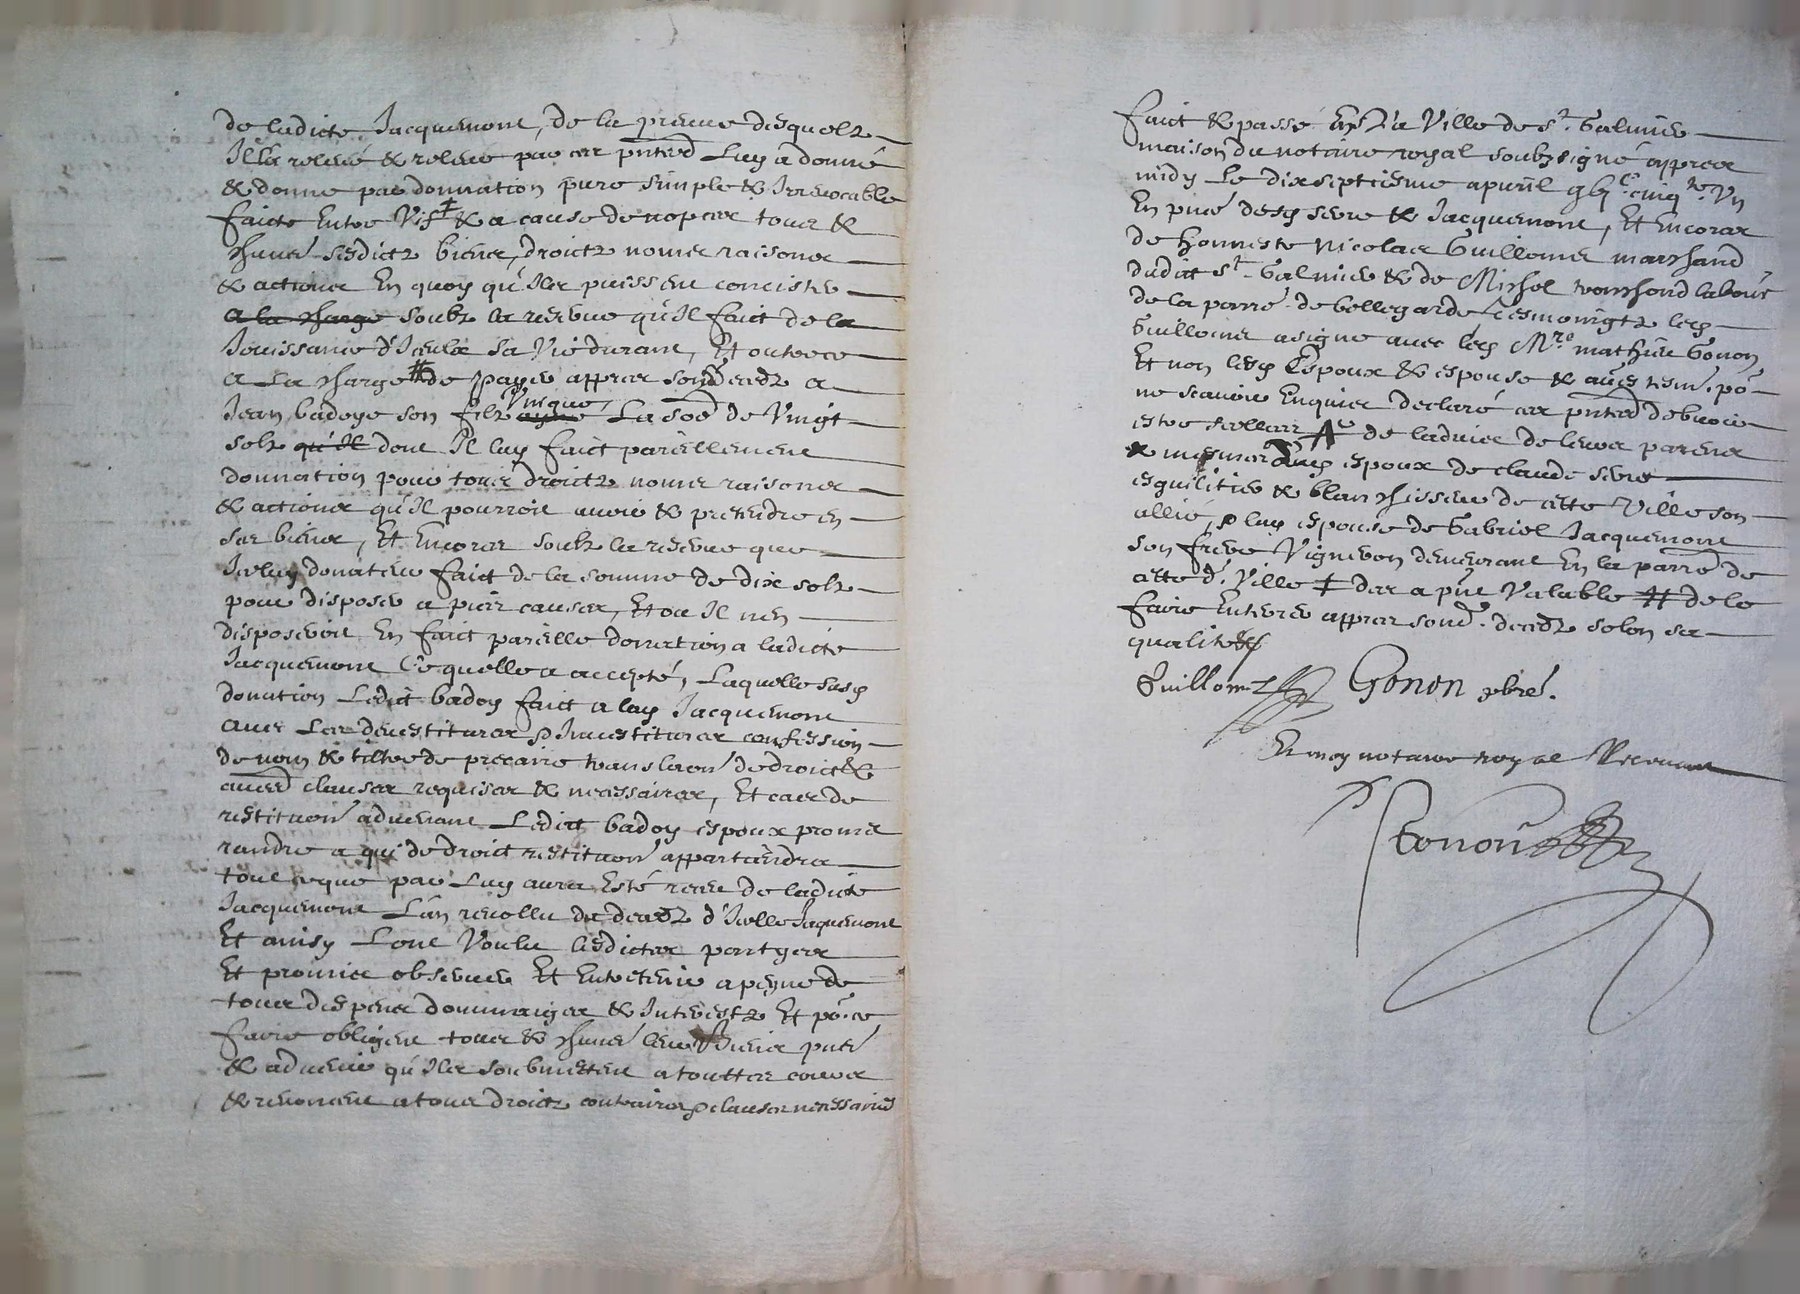 de ladicte Jacquemont, de la preuve desquelz
Il la relevé & releve par ces pntes Luy a donné
& donne par donnation pure simple & Irrevocable
faicte Entre Vifz & a cause de nopces tous &
Unis sesdictz biens, droictz noms raisons
& actions En quoy qu'Ils puissent concister
a la charge soubz la reserve qu'Il faict de la
Jouissance d'Iceulx sa Vie durant, Et outre ce
a La charge de payer appres son decedz a
Jean badoye son filz Unique, La soe de Vingt
solz qu'il dont Il luy faict pareillement
donnation pour tous droictz noms raisons
& actions qu'Il pourroit avoir & pretendre en
ses biens, Et Encores soubz la reserve que
Iceluy donateur faict de la somme de dix solz
pour disposer a pies causes, Et ou Il nen
disposeroit En faict pareille donation a ladicte
Jacquemont Ce quelle a accepté, Laquelle susd
donation Ledict badoy faict a lad Jacquemont
avec Les devestitures & Investitures confession
de nom & tiltre de precaire translaon de droict &
aues clauses requises & necessaires, Et cas de
restituon advenant Ledict badoy espoux promet
randre a qui de droict restituon appartiendra
tout ce que par Luy aura Esté receu de ladicte
Jacquemont Lan revollu du decedz d'Icelle Jacquemont
Et ainsy Lont Voulu lesdictes partyes
Et promis observer Et Entretenir a peyne de
tous despens dommaiges & Interestz Et po ce
faire obligent tous & Unis leurs Biens pntz
& advenir qu'Ils soubmettent a touttes cours
& renoncent a tous droictz contraires & clauses necessaires
faict & passé En La Ville de St Galmier
maison du notaire royal soubzsigné appres
midy Le dixseptiesme apvril cinqte Vn
En pnce desd serre & Jacquemont, Et Encores
de honneste Nicolas Guillomet marchand
dudict St Galmier & de Michel tronchond labour
de la parre de bellegarde tesmoingtz led
Guillomet a signé avec led Mre mathieu Gonon
Et non lesd Espoux & espouse & aues tesm. po
ne scavoir Enquis declaré ces pntes debvoir
estre scellees A de ladvice de leurs parens
& mesmes dud espoux de claude serre
esguilitier & blanchisseur de ceste Ville son
allié, & lad espouse de Gabriel Jacquemont
son frere Vigneron demeurant En la parre de
ceste d. Ville ‡ des a pnt Valable # de le
faire Enterrer appres son d. decedz selon sa
qualité
Guillomet Gonon pbre.
Et moy notaire royal Recevant
Ronon